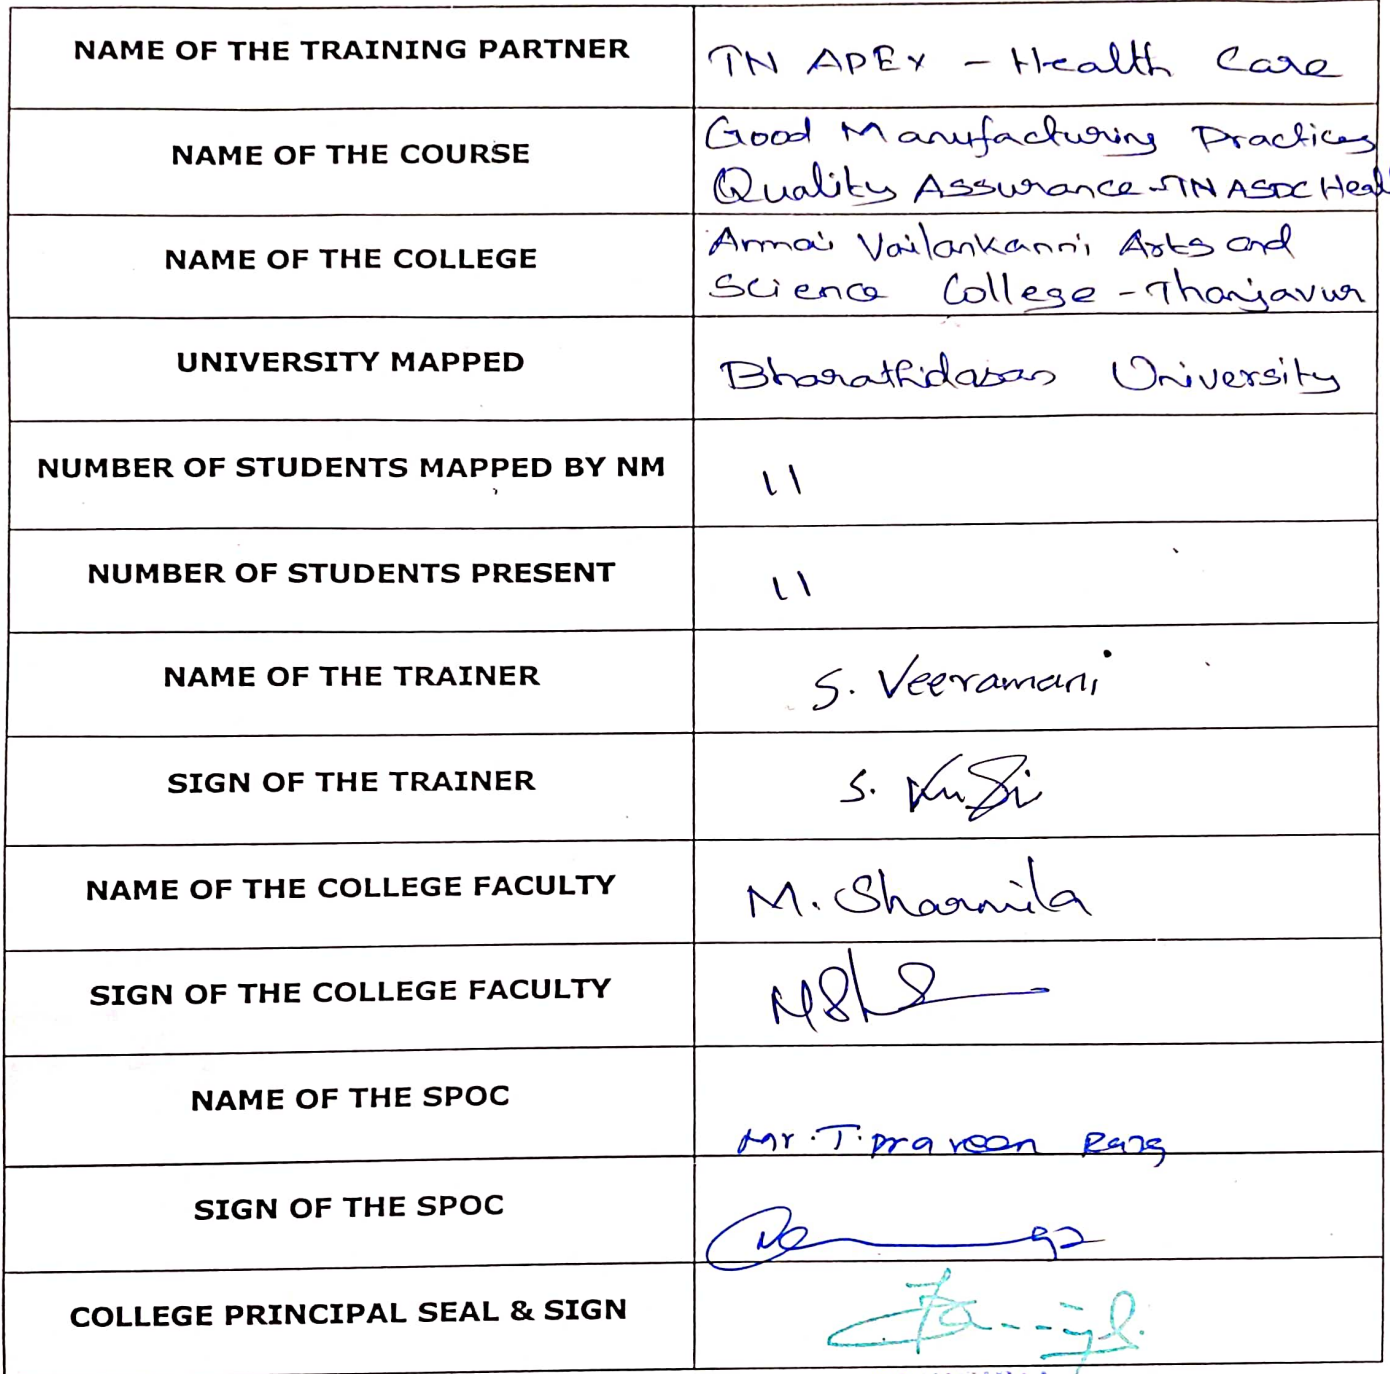 NAME OF THE TRAINING PARTNER
TN APEX - Health Care
NAME OF THE COURSE
Good Manufacturing Practices
Quality Assurance - TN ASDC Heal
NAME OF THE COLLEGE
Annai Vailankanni Arts and
Science College - Thanjavur
UNIVERSITY MAPPED
Bharathidasan University
NUMBER OF STUDENTS MAPPED BY NM
11
NUMBER OF STUDENTS PRESENT
11
NAME OF THE TRAINER
S. Veeramani
SIGN OF THE TRAINER
S.
NAME OF THE COLLEGE FACULTY
M. Sharmila
SIGN OF THE COLLEGE FACULTY
NAME OF THE SPOC
Mr. T. Praveen
SIGN OF THE SPOC
COLLEGE PRINCIPAL SEAL & SIGN